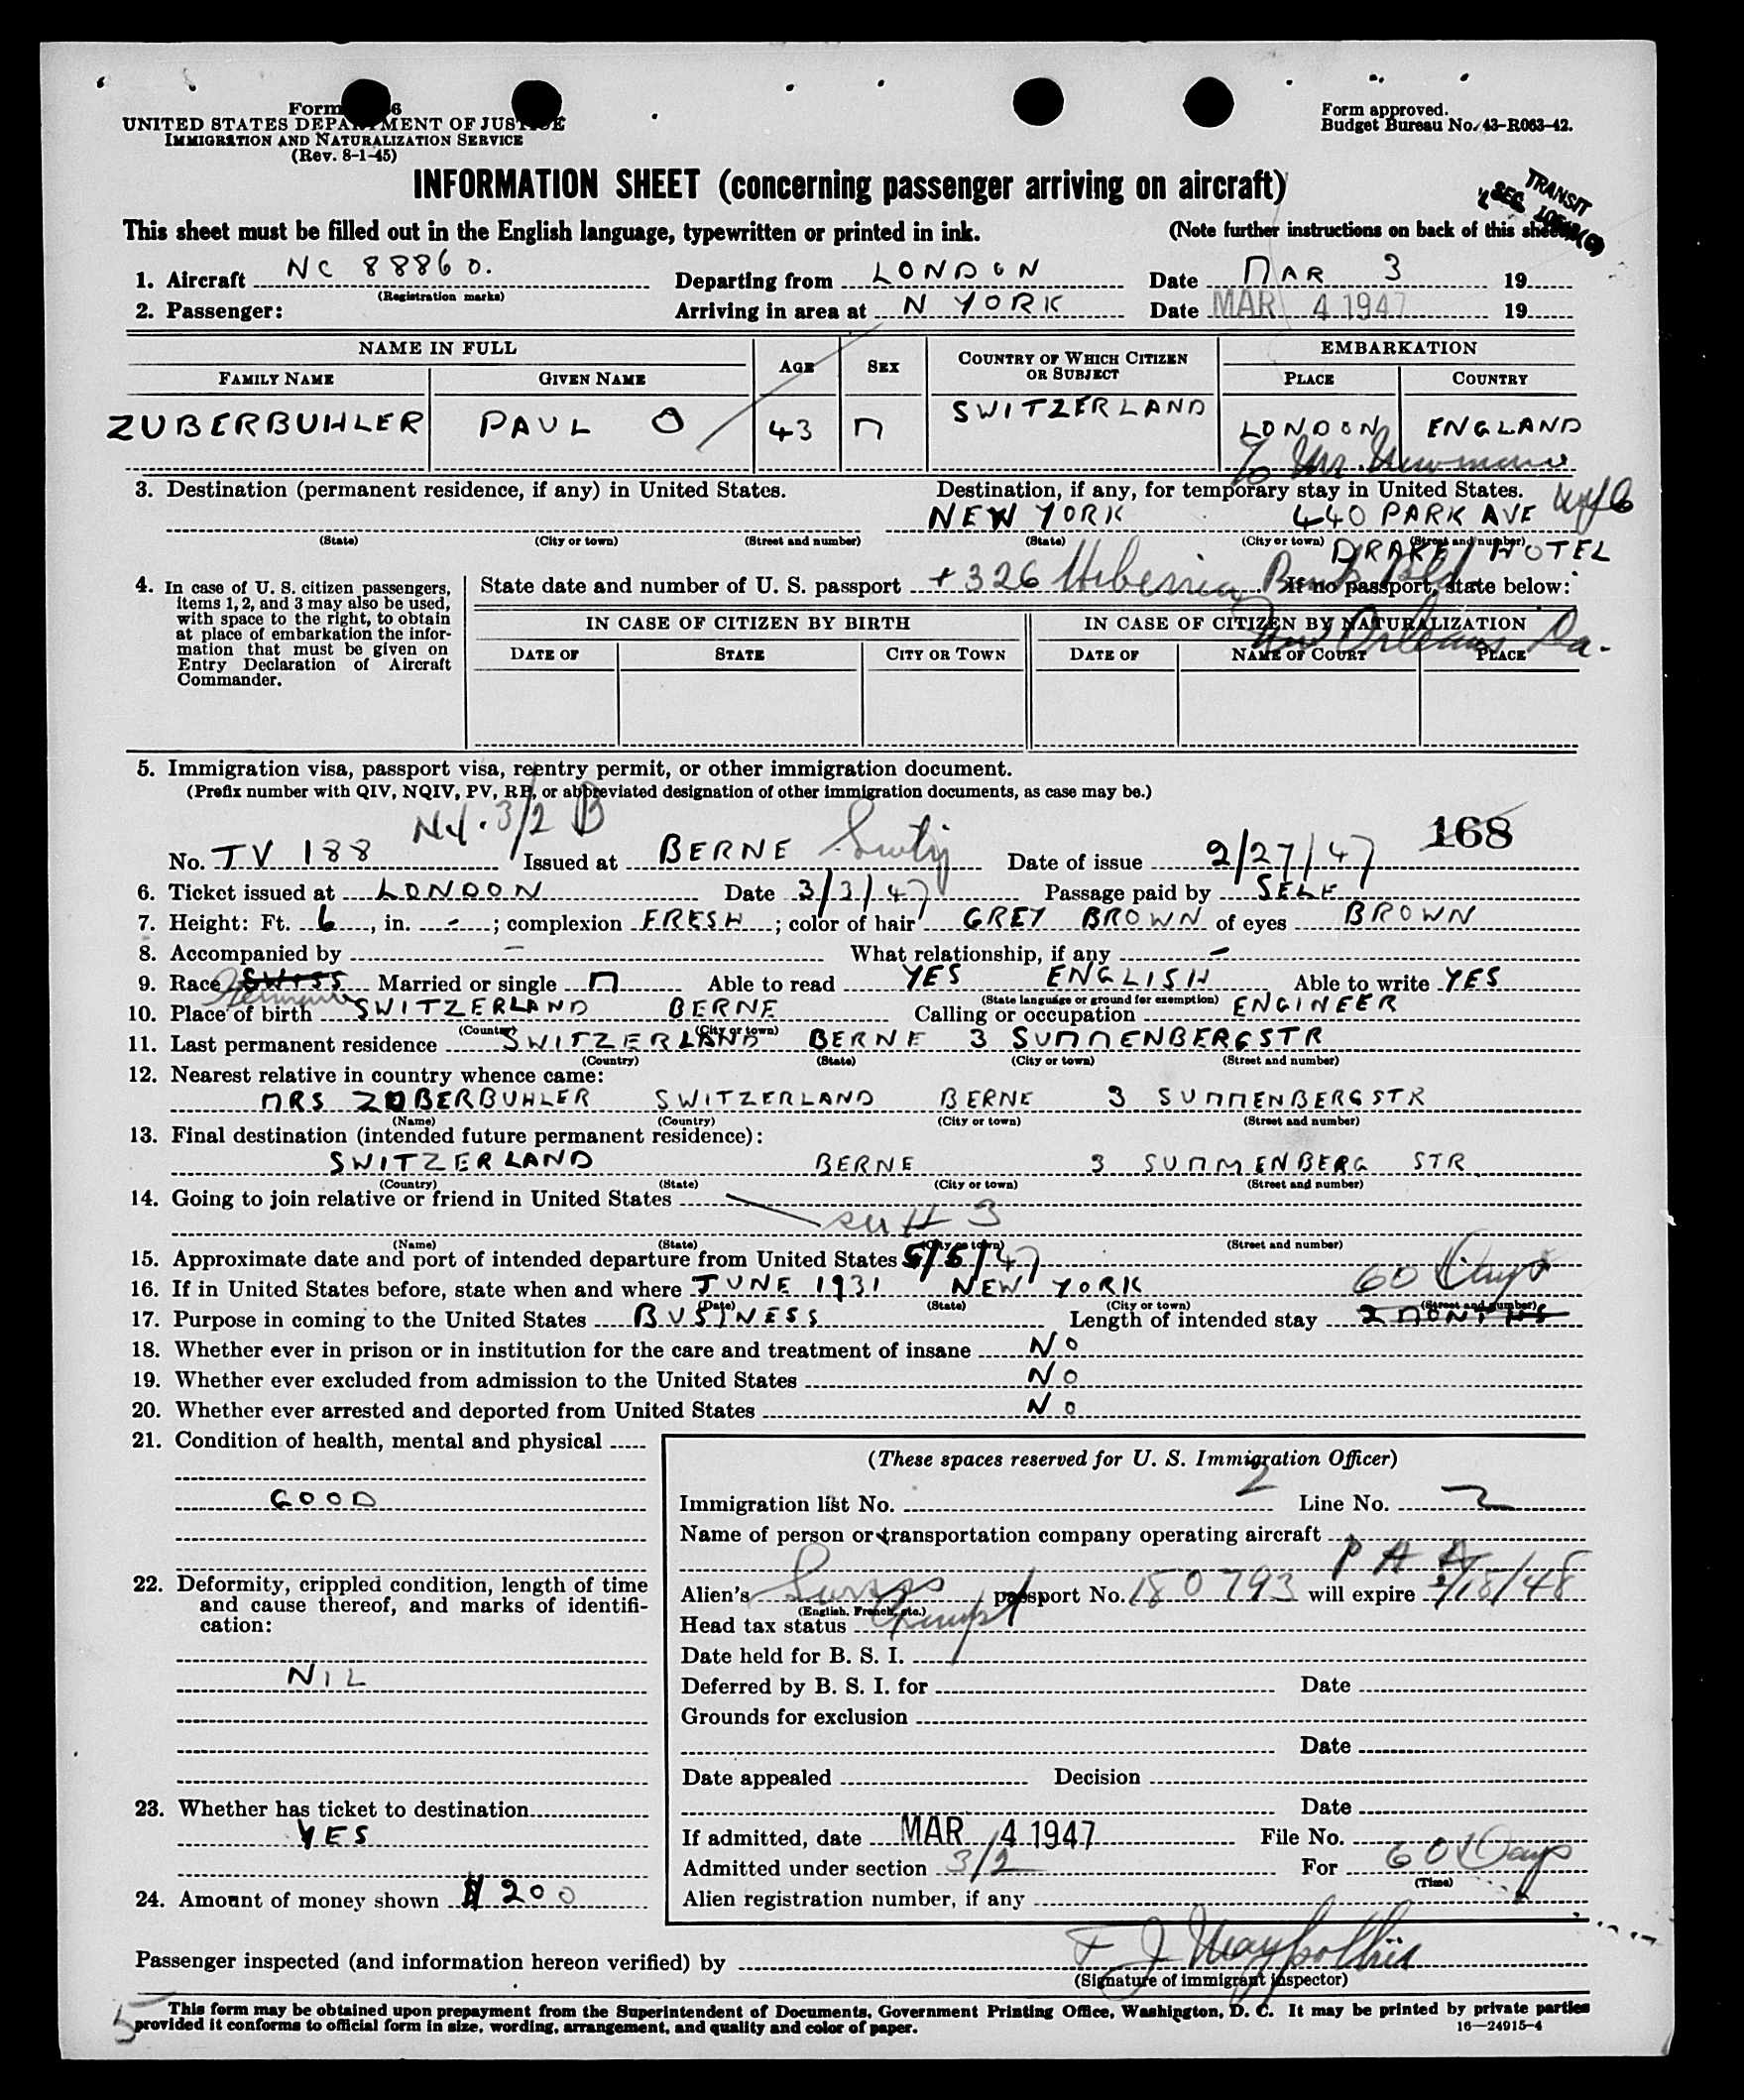 Form 6
UNITED STATES DEPARTMENT OF JUSTICE
IMMIGRATION AND NATURALIZATION SERVICE
(Rev. 8-1-45)
Form approved.
Budget Bureau No. 43-R063-42.
INFORMATION SHEET (concerning passenger arriving on aircraft)
TRANSIT
SEC.
This sheet must be filled out in the English language, typewritten or printed in ink.
(Note further instructions on back of this sheet)
1. Aircraft NC 88860. Departing from LONDON Date MAR 3 19
(Registration marks)
2. Passenger: Arriving in area at N YORK Date MAR 4 1947 19
NAME IN FULL
AGE
SEX
COUNTRY OF WHICH CITIZEN OR SUBJECT
EMBARKATION
FAMILY NAME GIVEN NAME PLACE COUNTRY
ZUBERBUHLER PAUL O 43 M SWITZERLAND LONDON ENGLAND
To Mr. Newman
3. Destination (permanent residence, if any) in United States. Destination, if any, for temporary stay in United States.
NEW YORK 440 PARK AVE NYC
(State) (City or town) (Street and number) (State) (City or town) (Street and number)
DRAKE HOTEL
4. In case of U. S. citizen passengers, items 1, 2, and 3 may also be used, with space to the right, to obtain at place of embarkation the information that must be given on Entry Declaration of Aircraft Commander.
State date and number of U. S. passport + 326 Hibernia Bank Bld. If no passport, state below:
New Orleans La.
IN CASE OF CITIZEN BY BIRTH IN CASE OF CITIZEN BY NATURALIZATION
DATE OF STATE CITY OR TOWN DATE OF NAME OF COURT PLACE
5. Immigration visa, passport visa, reentry permit, or other immigration document.
(Prefix number with QIV, NQIV, PV, RP, or abbreviated designation of other immigration documents, as case may be.)
3/2 B
168
No. TV 188 Issued at BERNE Switz Date of issue 2/27/47
6. Ticket issued at LONDON Date 3/3/47 Passage paid by SELF
7. Height: Ft. 6, in. - ; complexion FRESH ; color of hair GREY BROWN of eyes BROWN
8. Accompanied by - What relationship, if any -
9. Race SWISS Married or single M Able to read YES ENGLISH Able to write YES
(State language or ground for exemption)
10. Place of birth SWITZERLAND BERNE Calling or occupation ENGINEER
(Country) (City or town)
11. Last permanent residence SWITZERLAND BERNE 3 SUMMENBERGSTR
(Country) (State) (City or town) (Street and number)
12. Nearest relative in country whence came:
MRS ZUBERBUHLER SWITZERLAND BERNE 3 SUMMENBERGSTR
(Name) (Country) (City or town) (Street and number)
13. Final destination (intended future permanent residence):
SWITZERLAND BERNE 3 SUMMENBERG STR
(Country) (State) (City or town) (Street and number)
14. Going to join relative or friend in United States
see # 3
(Name) (State) (City or town) (Street and number)
15. Approximate date and port of intended departure from United States 5/5/47
16. If in United States before, state when and where JUNE 1931 NEW YORK
60 Days
(Date) (State) (City or town) (Street and number)
17. Purpose in coming to the United States BUSINESS Length of intended stay 2 MONTHS
18. Whether ever in prison or in institution for the care and treatment of insane NO
19. Whether ever excluded from admission to the United States NO
20. Whether ever arrested and deported from United States NO
21. Condition of health, mental and physical
GOOD
22. Deformity, crippled condition, length of time and cause thereof, and marks of identification:
NIL
23. Whether has ticket to destination
YES
24. Amount of money shown $200
(These spaces reserved for U. S. Immigration Officer)
Immigration list No. 2 Line No. 2
Name of person or transportation company operating aircraft
P A A
Alien's Swiss passport No. 180793 will expire 2/18/48
(English, French, etc.)
Head tax status Exempt
Date held for B. S. I.
Deferred by B. S. I. for Date
Grounds for exclusion
Date
Date appealed Decision
Date
If admitted, date MAR 4 1947 File No.
Admitted under section 3/2 For 60 Days
(Time)
Alien registration number, if any
Passenger inspected (and information hereon verified) by F J
(Signature of immigrant inspector)
5
This form may be obtained upon prepayment from the Superintendent of Documents, Government Printing Office, Washington, D. C. It may be printed by private parties
provided it conforms to official form in size, wording, arrangement, and quality and color of paper.
16—24915-4